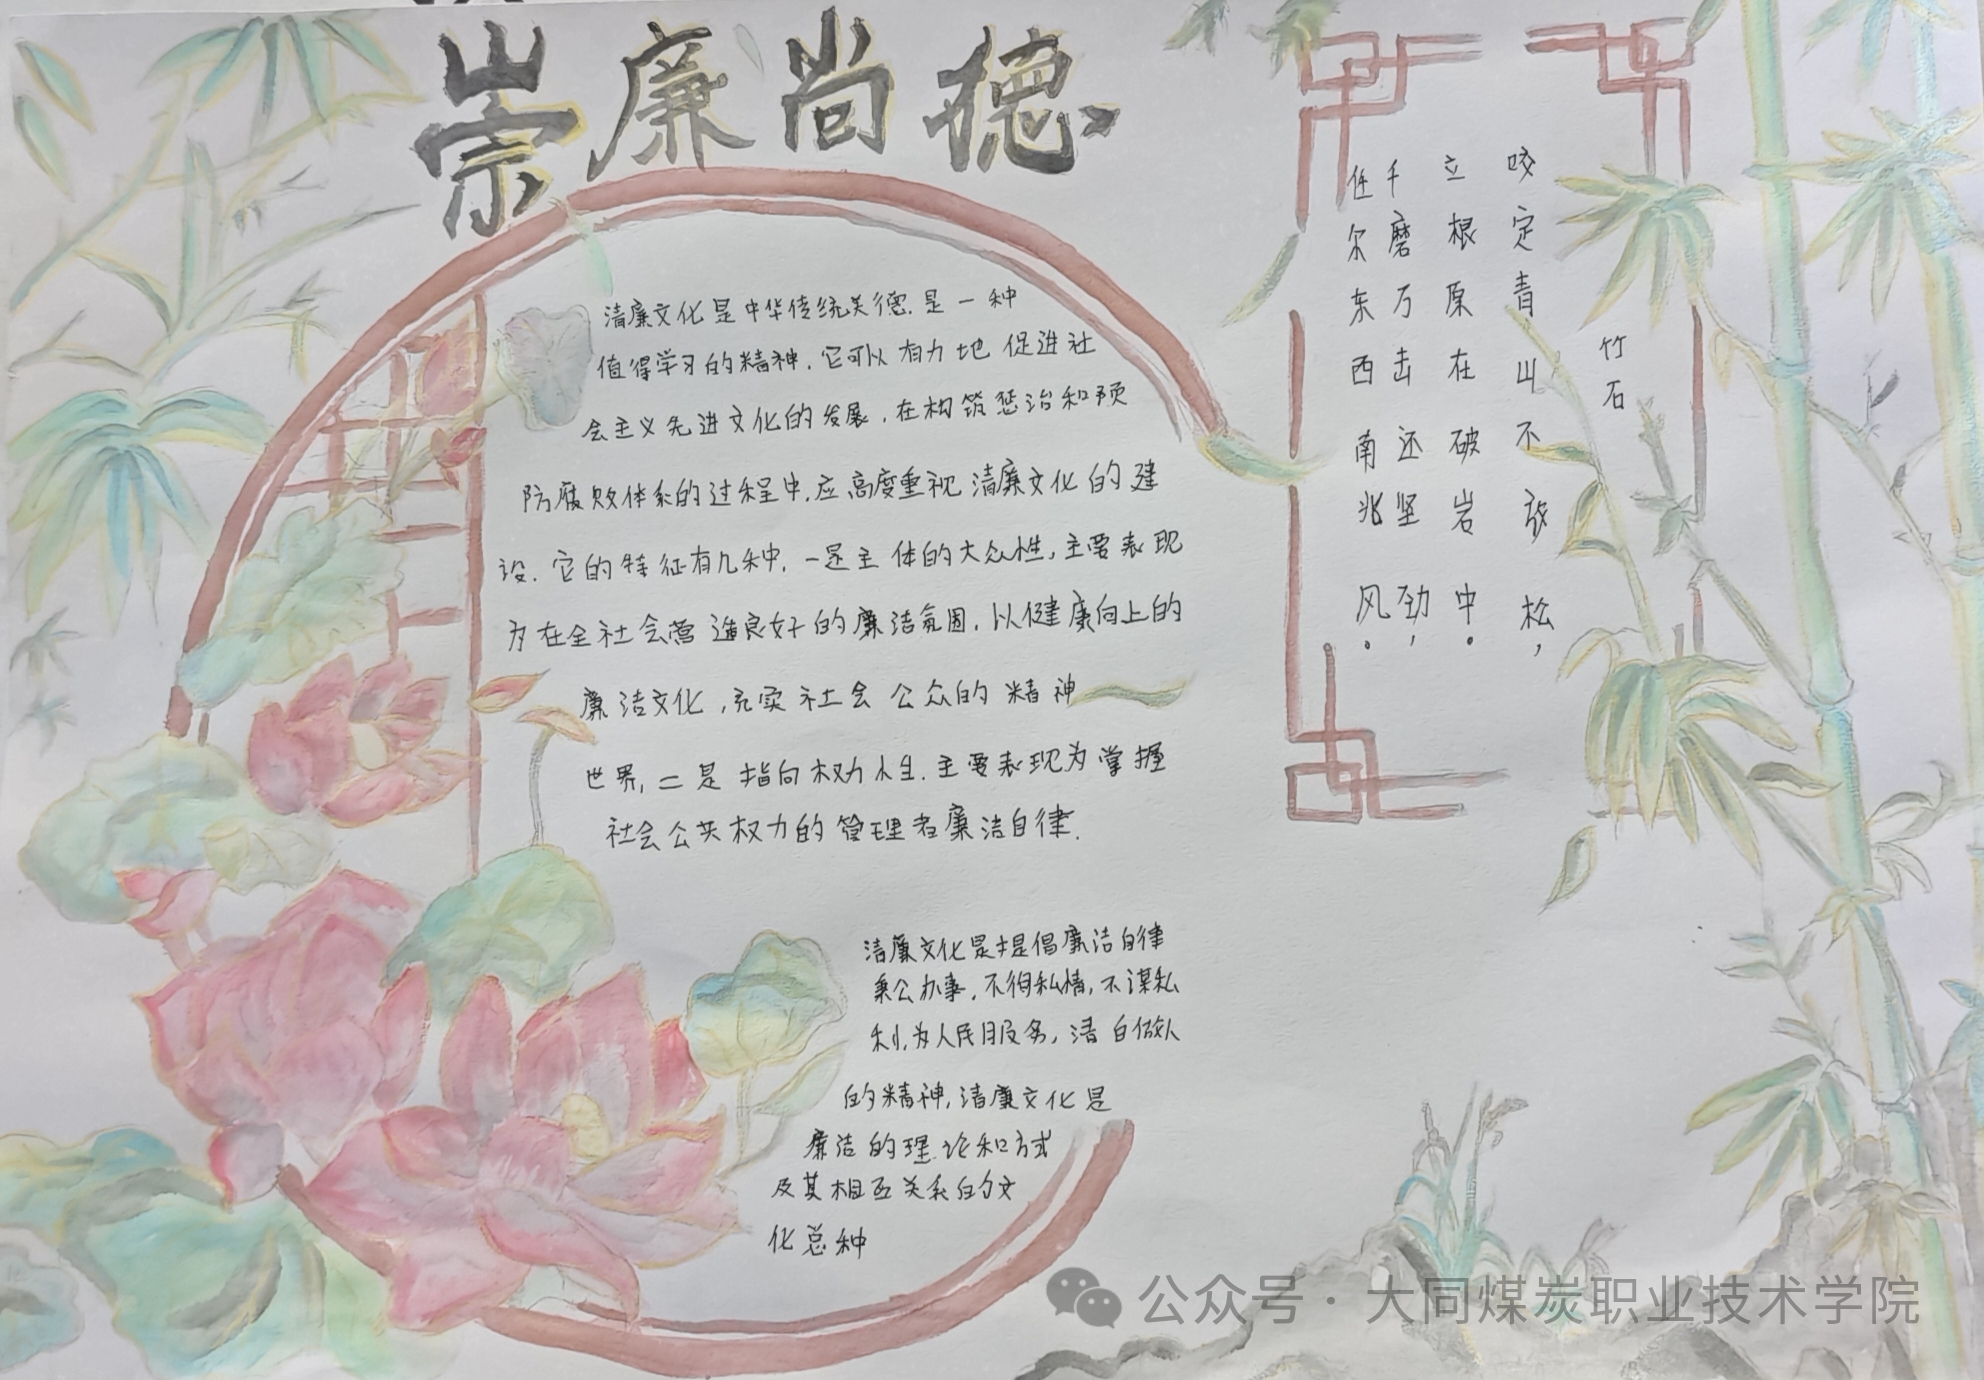 崇廉尚德
清廉文化是中华传统美德.是一种
值得学习的精神.它可以有力地促进社
会主义先进文化的发展.在构筑惩治和预
防腐败体系的过程中.应高度重视清廉文化的建
设.它的特征有几种.一是主体的大众性,主要表现
为在全社会营造良好的廉洁氛围.以健康向上的
廉洁文化,充实社会公众的精神
世界,二是指向权力性.主要表现为掌握
社会公共权力的管理者廉洁自律.
清廉文化是提倡廉洁自律
秉公办事.不徇私情,不谋私
利.为人民服务,清白做人
的精神,清廉文化是
廉洁的理论和方式
及其相互关系的文
化总种
竹石
咬定青山不放松,
立根原在破岩中.
千磨万击还坚劲,
任尔东西南北风.
公众号·大同煤炭职业技术学院